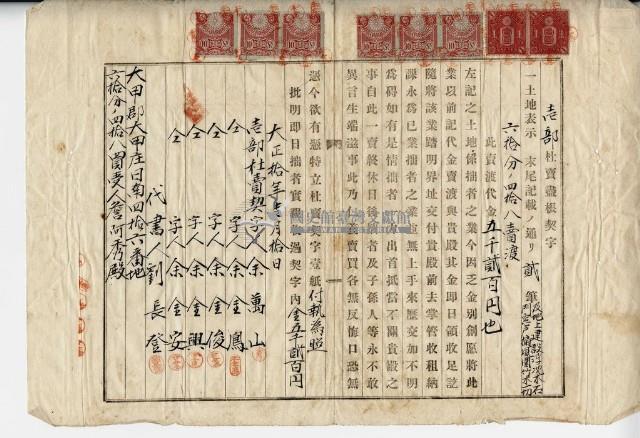 壱部 杜賣盡根契字
一土地表示 末尾記載ノ通リ 貳筆
六拾分ノ四拾八賣渡
此賣渡代金五千貳百円也
左記之土地係拙者之業今因乏金別創愿將此
業以前記代金賣渡與貴殿其金即日領收足訖
隨將該業踏明界址交付貴殿前去掌管收租納
課永為已業拙者之業並無上手來歷交加不明
為碍如有是情拙者出首抵當不關貴殿之
事自此一賣終休日後拙者及子孫人等永不敢
異言生端滋事此乃仁義賣買各無反悔口恐無
憑今欲有憑特立杜賣契字壹紙付執為照
批明即日拙者實領過契字內金五千貳百円
大正拾年七月拾日
壱部杜賣契字人余萬山
仝 字人余金鳳
仝 字人余金俊
仝 字人余金興
仝 字人余金安
代書人劉長登
大甲郡大甲庄日南四拾六番地
六拾分ノ四拾八買受人詹阿秀殿
國史館臺灣文獻館